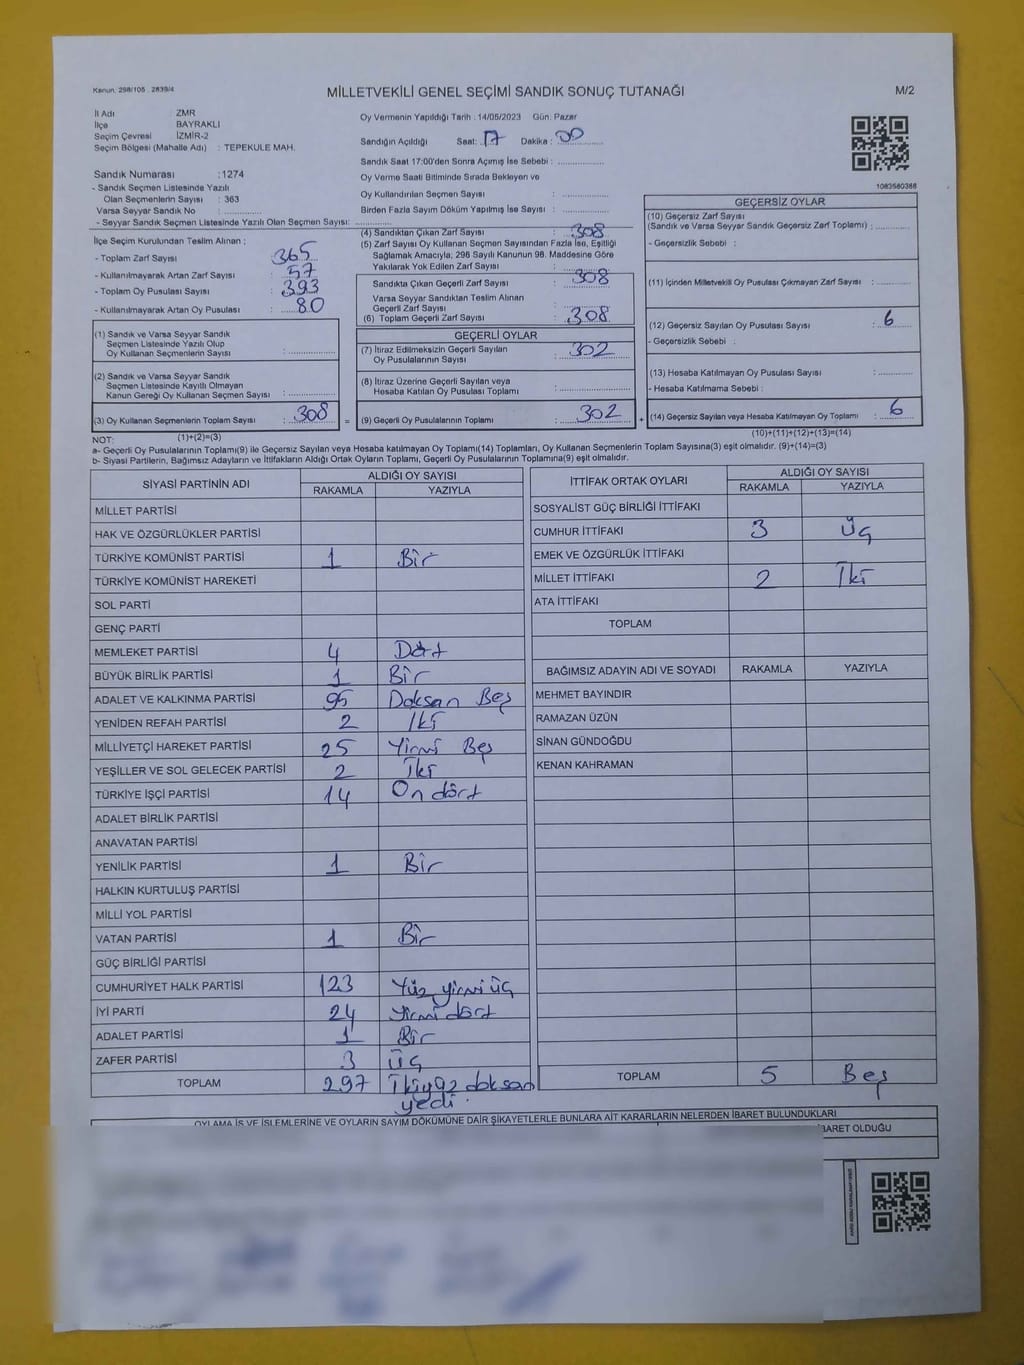 Kanun. 298/105 . 2839/4
MİLLETVEKİLİ GENEL SEÇİMİ SANDIK SONUÇ TUTANAĞI
M/2
İl Adı : ZMR
İlçe BAYRAKLI
Seçim Çevresi : İZMİR-2
Seçim Bölgesi (Mahalle Adı) : TEPEKULE MAH.
Sandık Numarası :1274
- Sandık Seçmen Listesinde Yazılı
Olan Seçmenlerin Sayısı : 363
Varsa Seyyar Sandık No :
- Seyyar Sandık Seçmen Listesinde Yazılı Olan Seçmen Sayısı:
Oy Vermenin Yapıldığı Tarih : 14/05/2023 Gün: Pazar
Sandığın Açıldığı Saat: 17 Dakika : 00
Sandık Saat 17:00'den Sonra Açımış İse Sebebi :
Oy Verme Saati Bitiminde Sırada Bekleyen ve
Oy Kullandırılan Seçmen Sayısı :
Birden Fazla Sayım Döküm Yapılmış İse Sayısı :
1083580388
İlçe Seçim Kurulundan Teslim Alınan ;
- Toplam Zarf Sayısı : 365
- Kullanılmayarak Artan Zarf Sayısı : 57
- Toplam Oy Pusulası Sayısı : 393
- Kullanılmayarak Artan Oy Pusulası : 80
(1) Sandık ve Varsa Seyyar Sandık
Seçmen Listesinde Yazılı Olup
Oy Kullanan Seçmenlerin Sayısı :
(2) Sandık ve Varsa Seyyar Sandık
Seçmen Listesinde Kayıtlı Olmayan
Kanun Gereği Oy Kullanan Seçmen Sayısı :
(3) Oy Kullanan Seçmenlerin Toplam Sayısı : 308
(1)+(2)=(3)
=
(4) Sandıktan Çıkan Zarf Sayısı : 308
(5) Zarf Sayısı Oy Kullanan Seçmen Sayısından Fazla İse, Eşitliği
Sağlamak Amacıyla, 298 Sayılı Kanunun 98. Maddesine Göre
Yakılarak Yok Edilen Zarf Sayısı :
Sandıkta Çıkan Geçerli Zarf Sayısı : 308
Varsa Seyyar Sandıktan Teslim Alınan
Geçerli Zarf Sayısı :
(6) Toplam Geçerli Zarf Sayısı : 308
GEÇERLİ OYLAR
(7) İtiraz Edilmeksizin Geçerli Sayılan
Oy Pusulalarının Sayısı : 302
(8) İtiraz Üzerine Geçerli Sayılan veya
Hesaba Katılan Oy Pusulası Toplamı :
(9) Geçerli Oy Pusulalarının Toplamı : 302
+
GEÇERSİZ OYLAR
(10) Geçersiz Zarf Sayısı
(Sandık ve Varsa Seyyar Sandık Geçersiz Zarf Toplamı) :
- Geçersizlik Sebebi :
(11) İçinden Milletvekili Oy Pusulası Çıkmayan Zarf Sayısı :
(12) Geçersiz Sayılan Oy Pusulası Sayısı : 6
- Geçersizlik Sebebi :
(13) Hesaba Katılmayan Oy Pusulası Sayısı :
- Hesaba Katılmama Sebebi :
(14) Geçersiz Sayılan veya Hesaba Katılmayan Oy Toplamı : 6
(10)+(11)+(12)+(13)=(14)
NOT:
a- Geçerli Oy Pusulalarının Toplamı(9) ile Geçersiz Sayılan veya Hesaba katılmayan Oy Toplamı(14) Toplamları, Oy Kullanan Seçmenlerin Toplam Sayısına(3) eşit olmalıdır. (9)+(14)=(3)
b- Siyasi Partilerin, Bağımsız Adayların ve İttifakların Aldığı Ortak Oyların Toplamı, Geçerli Oy Pusulalarının Toplamına(9) eşit olmalıdır.
SİYASİ PARTİNİN ADI
ALDIĞI OY SAYISI
RAKAMLA YAZIYLA
MİLLET PARTİSİ
HAK VE ÖZGÜRLÜKLER PARTİSİ
TÜRKİYE KOMÜNİST PARTİSİ 1 Bir
TÜRKİYE KOMÜNİST HAREKETİ
SOL PARTİ
GENÇ PARTİ
MEMLEKET PARTİSİ 4 Dört
BÜYÜK BİRLİK PARTİSİ 1 Bir
ADALET VE KALKINMA PARTİSİ 95 Doksan Beş
YENİDEN REFAH PARTİSİ 2 İki
MİLLİYETÇİ HAREKET PARTİSİ 25 Yirmi Beş
YEŞİLLER VE SOL GELECEK PARTİSİ 2 İki
TÜRKİYE İŞÇİ PARTİSİ 14 On dört
ADALET BİRLİK PARTİSİ
ANAVATAN PARTİSİ
YENİLİK PARTİSİ 1 Bir
HALKIN KURTULUŞ PARTİSİ
MİLLİ YOL PARTİSİ
VATAN PARTİSİ 1 Bir
GÜÇ BİRLİĞİ PARTİSİ
CUMHURİYET HALK PARTİSİ 123 Yüz yirmi üç
İYİ PARTİ 24 yirmi dört
ADALET PARTİSİ 1 Bir
ZAFER PARTİSİ 3 Üç
TOPLAM 297 İkiyüz doksan
yedi.
İTTİFAK ORTAK OYLARI
ALDIĞI OY SAYISI
RAKAMLA YAZIYLA
SOSYALİST GÜÇ BİRLİĞİ İTTİFAKI
CUMHUR İTTİFAKI 3 Üç
EMEK VE ÖZGÜRLÜK İTTİFAKI
MİLLET İTTİFAKI 2 İki
ATA İTTİFAKI
TOPLAM
BAĞIMSIZ ADAYIN ADI VE SOYADI RAKAMLA YAZIYLA
MEHMET BAYINDIR
RAMAZAN ÜZÜN
SİNAN GÜNDOĞDU
KENAN KAHRAMAN
TOPLAM 5 Beş
OYLAMA İŞ VE İŞLEMLERİNE VE OYLARIN SAYIM DÖKÜMÜNE DAİR ŞİKAYETLERLE BUNLARA AİT KARARLARIN NELERDEN İBARET BULUNDUKLARI
İBARET OLDUĞU